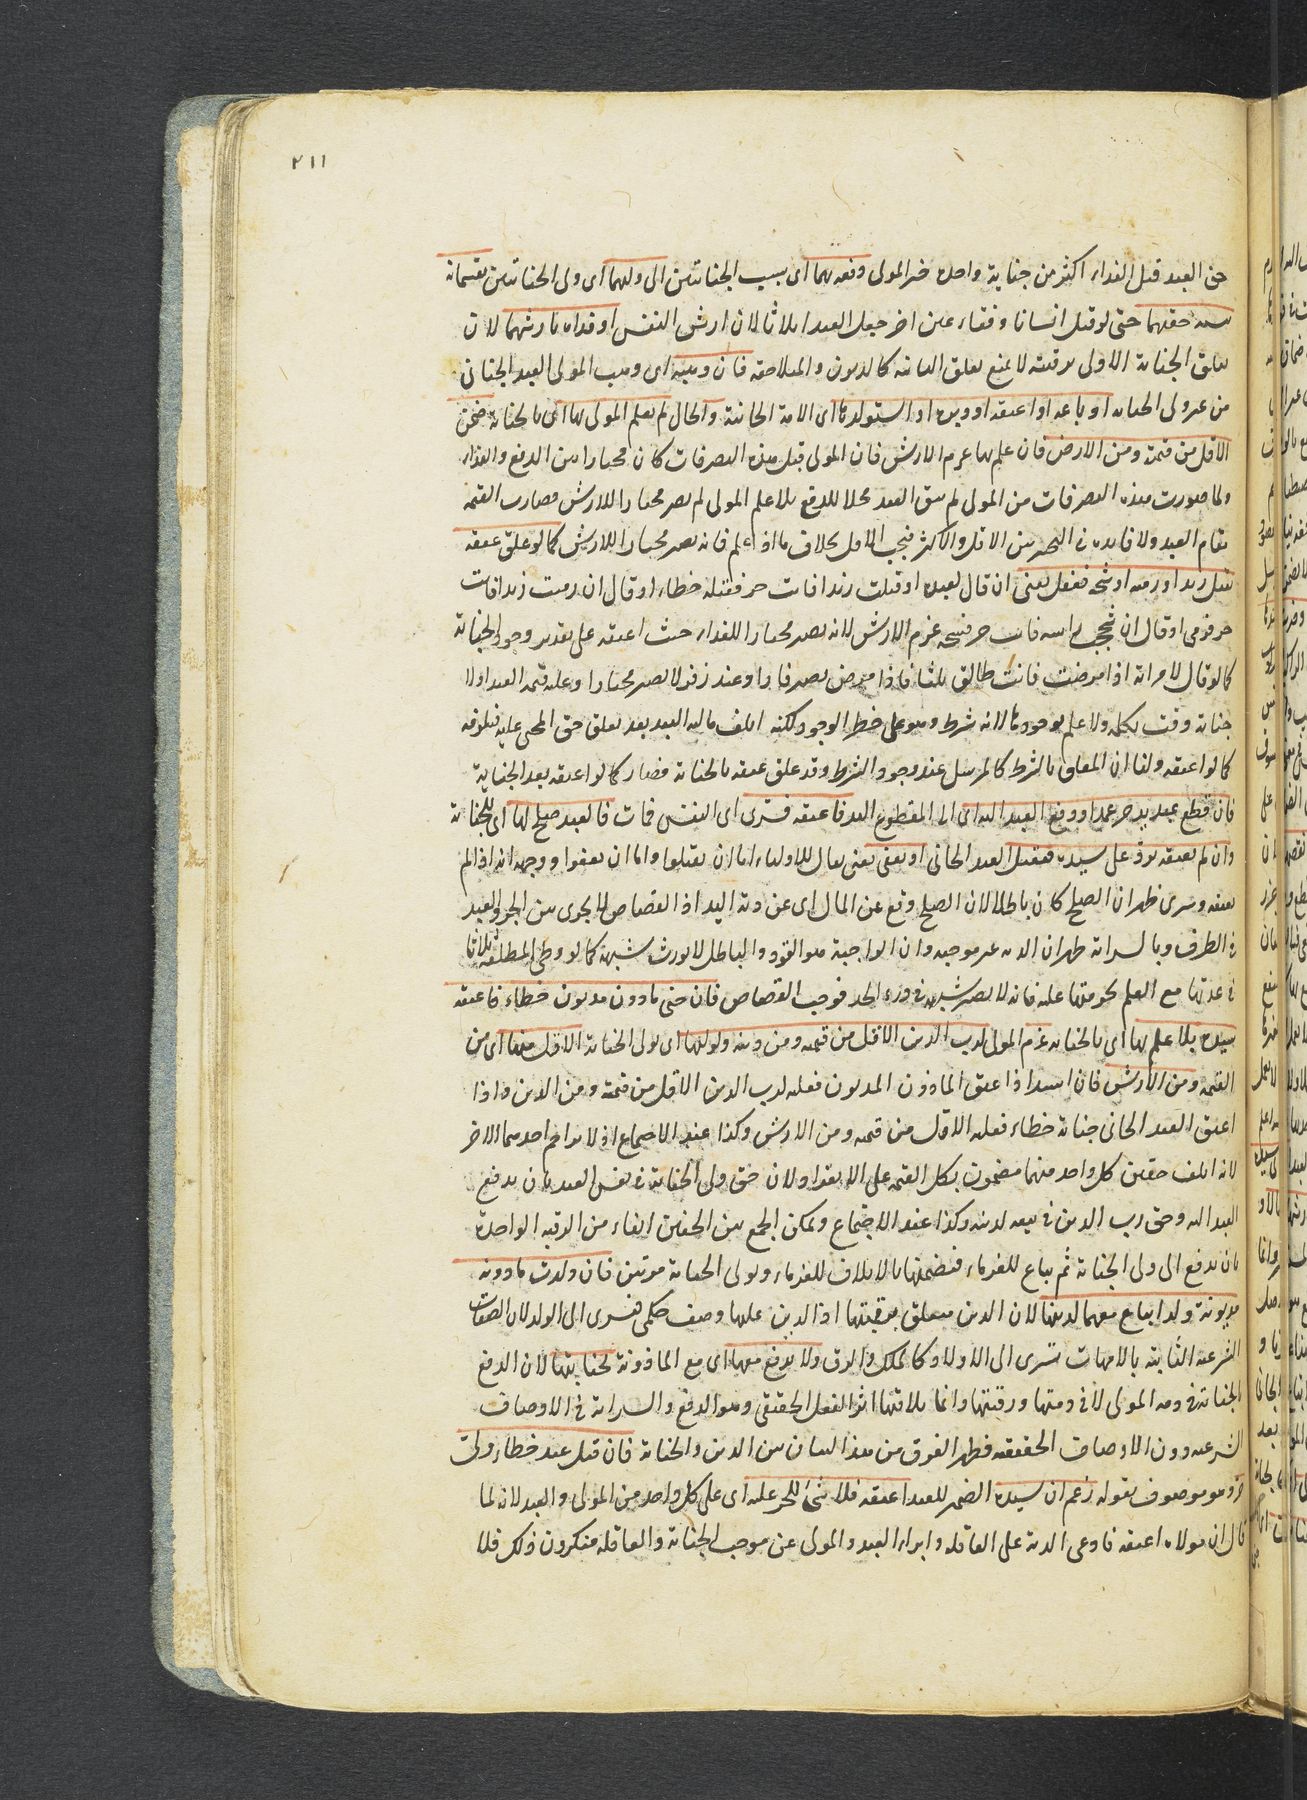 ٢١١
جنى العبد قبل الفداء اكثر من جناية واحدة خير المولى دفعه بهما اى بسبب الجنايتين الى وليهما اى ولى الجنايتين يقتسمانه
بنسبة حقهما حتى لو قتل انسانا وفقاء عين اخر جعل العبد اثلاثا لان ارش النفس او فداه بارشهما لان
تعلق الجناية الاولى برقبته لا يمنع تعلق الثانية كالديون والمتلاحقة فان وهبه اى وهب المولى العبد الجانى
من غير ولى الجناية او باعه او اعتقه او دبره او استولدها اى الامة الجانية والحال لم يعلم المولى بها اى بالجناية ضمن
الاقل من قيمته ومن الارض فان علم بها غرم الارش فان المولى قبل هذه التصرفات كان مختارا بين الدفع والفداء
ولما صدرت هذه التصرفات من المولى لم يبق العبد محلا للدفع بلا علم المولى لم يصر مختارا للارش فصارت القيمة
مقام العبد ولا فايدة فى التخيير بين الاقل والاكثر فيجب الاقل بخلاف ما اذا علم فانه يصير مختارا للارش كما لو علق عتقه
بقتل زيد او رميه او شجه ففعل يعنى ان قال لعبده ان قتلت زيدا فانت حر فقتله خطاء او قال ان رميت زيدا فانت
حر فرمى او قال ان شججت راسه فانت حر فشجه غرم الارش لانه يصير مختارا للفداء حيث اعتقه على تقدير وجود الجناية
كما لو قال لامراته اذا مرضت فانت طالق ثلثا فاذا مرض يصير فارا وعند زفر لا يصير مختارا وعليه قيمة العبد اذ لا
جناية وقت تكلمه ولا علم بوجودها لانه شرط وهو على خطر الوجود لكنه اتلف مالية العبد بعد تعلق حق المجنى عليه فيلزمه
كما لو اعتقه ولنا ان المعلق بالشرط كالمرسل عند وجود الشرط وقد علق عتقه بالجناية فصار كما لو اعتقه بعد الجناية
فان قطع عبد يد حر عمدا ودفع العبد اليه اى الى المقطوع اليد فاعتقه فسرى اى النفس فمات فالعبد صلح بها اى بالجناية
وان لم يعتقه يرد على سيده فيقتل العبد الجانى او يعفى يعنى يقال للاولياء اما ان يقتلوا واما ان يعفوا ووجهه انه اذا لم
يعتقه وسرى ظهر ان الصلح كان باطلا لان الصلح وقع عن المال اى عن دية اليد اذ القصاص لا يجرى بين الحر والعبد
فى الطرف وبالسراية ظهر ان الدية غير موجبه وان الواجبة هو القود والباطل لا يورث شبهة كما لو وطئ المطلقة ثلاثا
فى عدتها مع العلم بحرمتها عليه فانه لا يصير شبهة فى درء الحد فوجب القصاص فان جنى ماذون مديون خطاء فاعتقه
سيده بلا علم بها اى بالجناية غرم المولى لرب الدين الاقل من قيمته ومن دينه ولوليها اى لولى الجناية الاقل منها اى من
القيمة ومن الارش فان السيد اذا عتق الماذون المديون فعليه لرب الدين الاقل من قيمته ومن الدين واذا
اعتق العبد الجانى جناية خطاء فعليه الاقل من قيمته ومن الارش وكذا عند الاجتماع اذ لا يزاحم احدهما الاخر
لانه اتلف حقين كل واحد منهما مضمون بكل القيمة على الانفراد لان حق ولى الجناية فى نفس العبد بان يدفع
العبد اليه وحق رب الدين فى بيعه لدينه وكذا عند الاجتماع ويمكن الجمع بين الحقين ايفاء من الرقبة الواحدة
بان يدفع الى ولى الجناية ثم يباع للغرماء فيضمنها بالاتلاف للغرماء ولولى الجناية مرتين فان ولدت ماذونة
مديونة ولدا يباع معها لدينها لان الدين متعلق برقبتها اذ الدين عليها وصف حكمى فيسرى الى الولد لان الصفات
الشرعية الثابتة بالامهات تسرى الى الاولاد كالملك والرق ولا يدفع معها اى مع الماذونة لجنايتها لان الدفع
للجناية فى ذمة المولى لا فى ذمتها ورقبتها وانما يلاقيها اثر الفعل الحقيقى وهو الدفع والسراية فى الاوصاف
الشرعية دون الاوصاف الحقيقة فظهر الفرق من هذا البيان بين الدين والجناية فان قتل عبد خطاء ولى
حر وهو موصوف بقوله زعم ان سيده الضمير للعبد اعتقه فلا شئ للحر عليه اى على كل واحد من المولى والعبد لانه لما
قال ان مولاه اعتقه فادعى الدية على العاقلة وابراء العبد والمولى عن موجب الجناية والعاقلة منكرون ذلك فلا